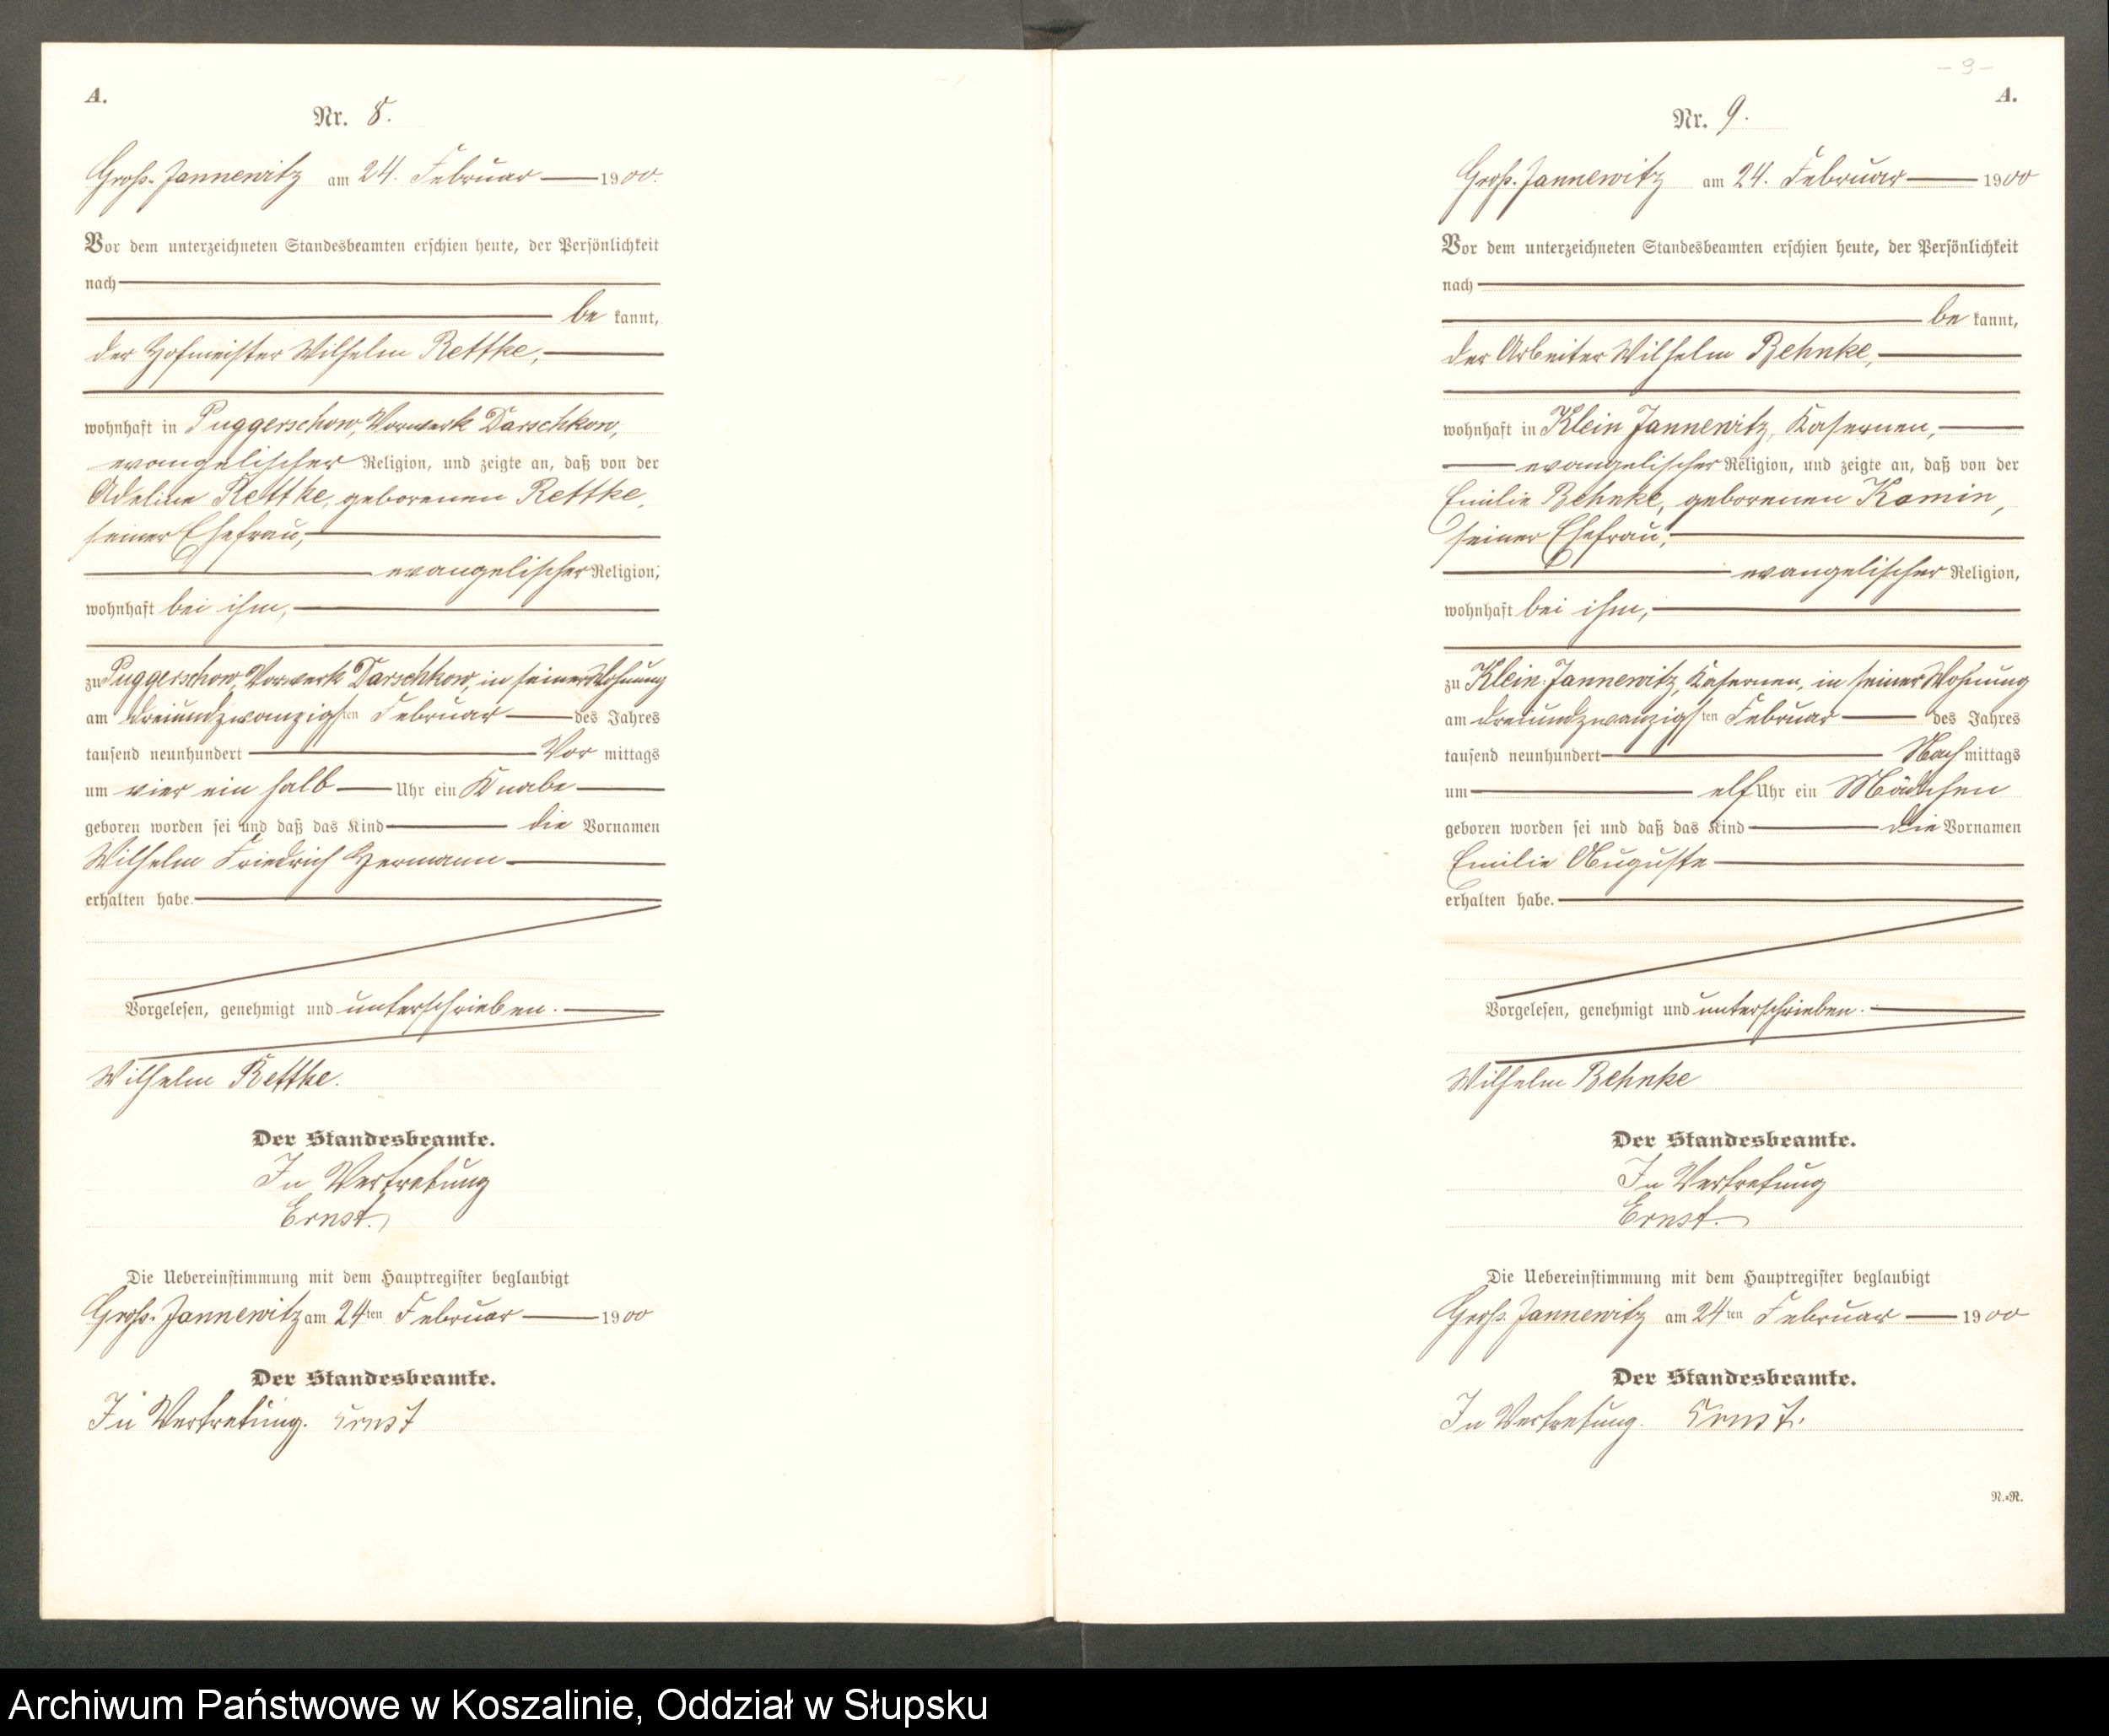 A.
Nr. 8.
Groß-Jannewitz am 24. Februar 1900.
Vor dem unterzeichneten Standesbeamten erschien heute, der Persönlichkeit
nach
be kannt,
der Hofmeister Wilhelm Rettke,
wohnhaft in Puggerschow, Vorwerk Darschkow,
evangelischer Religion, und zeigte an, daß von der
Adeline Rettke, geborenen Rettke,
seiner Ehefrau,
evangelischer Religion,
wohnhaft bei ihm,
zu Puggerschow, Vorwerk Darschkow, in seiner Wohnung
am dreiundzwanzigsten Februar des Jahres
tausend neunhundert Vor mittags
um vier ein halb Uhr ein Knabe
geboren worden sei und daß das Kind die Vornamen
Wilhelm Friedrich Hermann
erhalten habe.
Vorgelesen, genehmigt und unterschrieben.
Wilhelm Rettke.
Der Standesbeamte.
In Vertretung
Ernst.
Die Uebereinstimmung mit dem Hauptregister beglaubigt
Groß-Jannewitz am 24ten Februar 1900
Der Standesbeamte.
In Vertretung. Ernst
- 9 -
A.
Nr. 9.
Groß-Jannewitz am 24. Februar 1900
Vor dem unterzeichneten Standesbeamten erschien heute, der Persönlichkeit
nach
be kannt,
der Arbeiter Wilhelm Behnke,
wohnhaft in Klein Jannewitz, Kasernen,
evangelischer Religion, und zeigte an, daß von der
Emilie Behnke, geborenen Kamin,
seiner Ehefrau,
evangelischer Religion,
wohnhaft bei ihm,
zu Klein-Jannewitz, Kasernen, in seiner Wohnung
am dreiundzwanzigsten Februar des Jahres
tausend neunhundert Nach mittags
um elf Uhr ein Mädchen
geboren worden sei und daß das Kind die Vornamen
Emilie Auguste
erhalten habe.
Vorgelesen, genehmigt und unterschrieben.
Wilhelm Behnke
Der Standesbeamte.
In Vertretung
Ernst.
Die Uebereinstimmung mit dem Hauptregister beglaubigt
Groß-Jannewitz am 24ten Februar 1900
Der Standesbeamte.
In Vertretung. Ernst.
N.=R.
Archiwum Państwowe w Koszalinie, Oddział w Słupsku